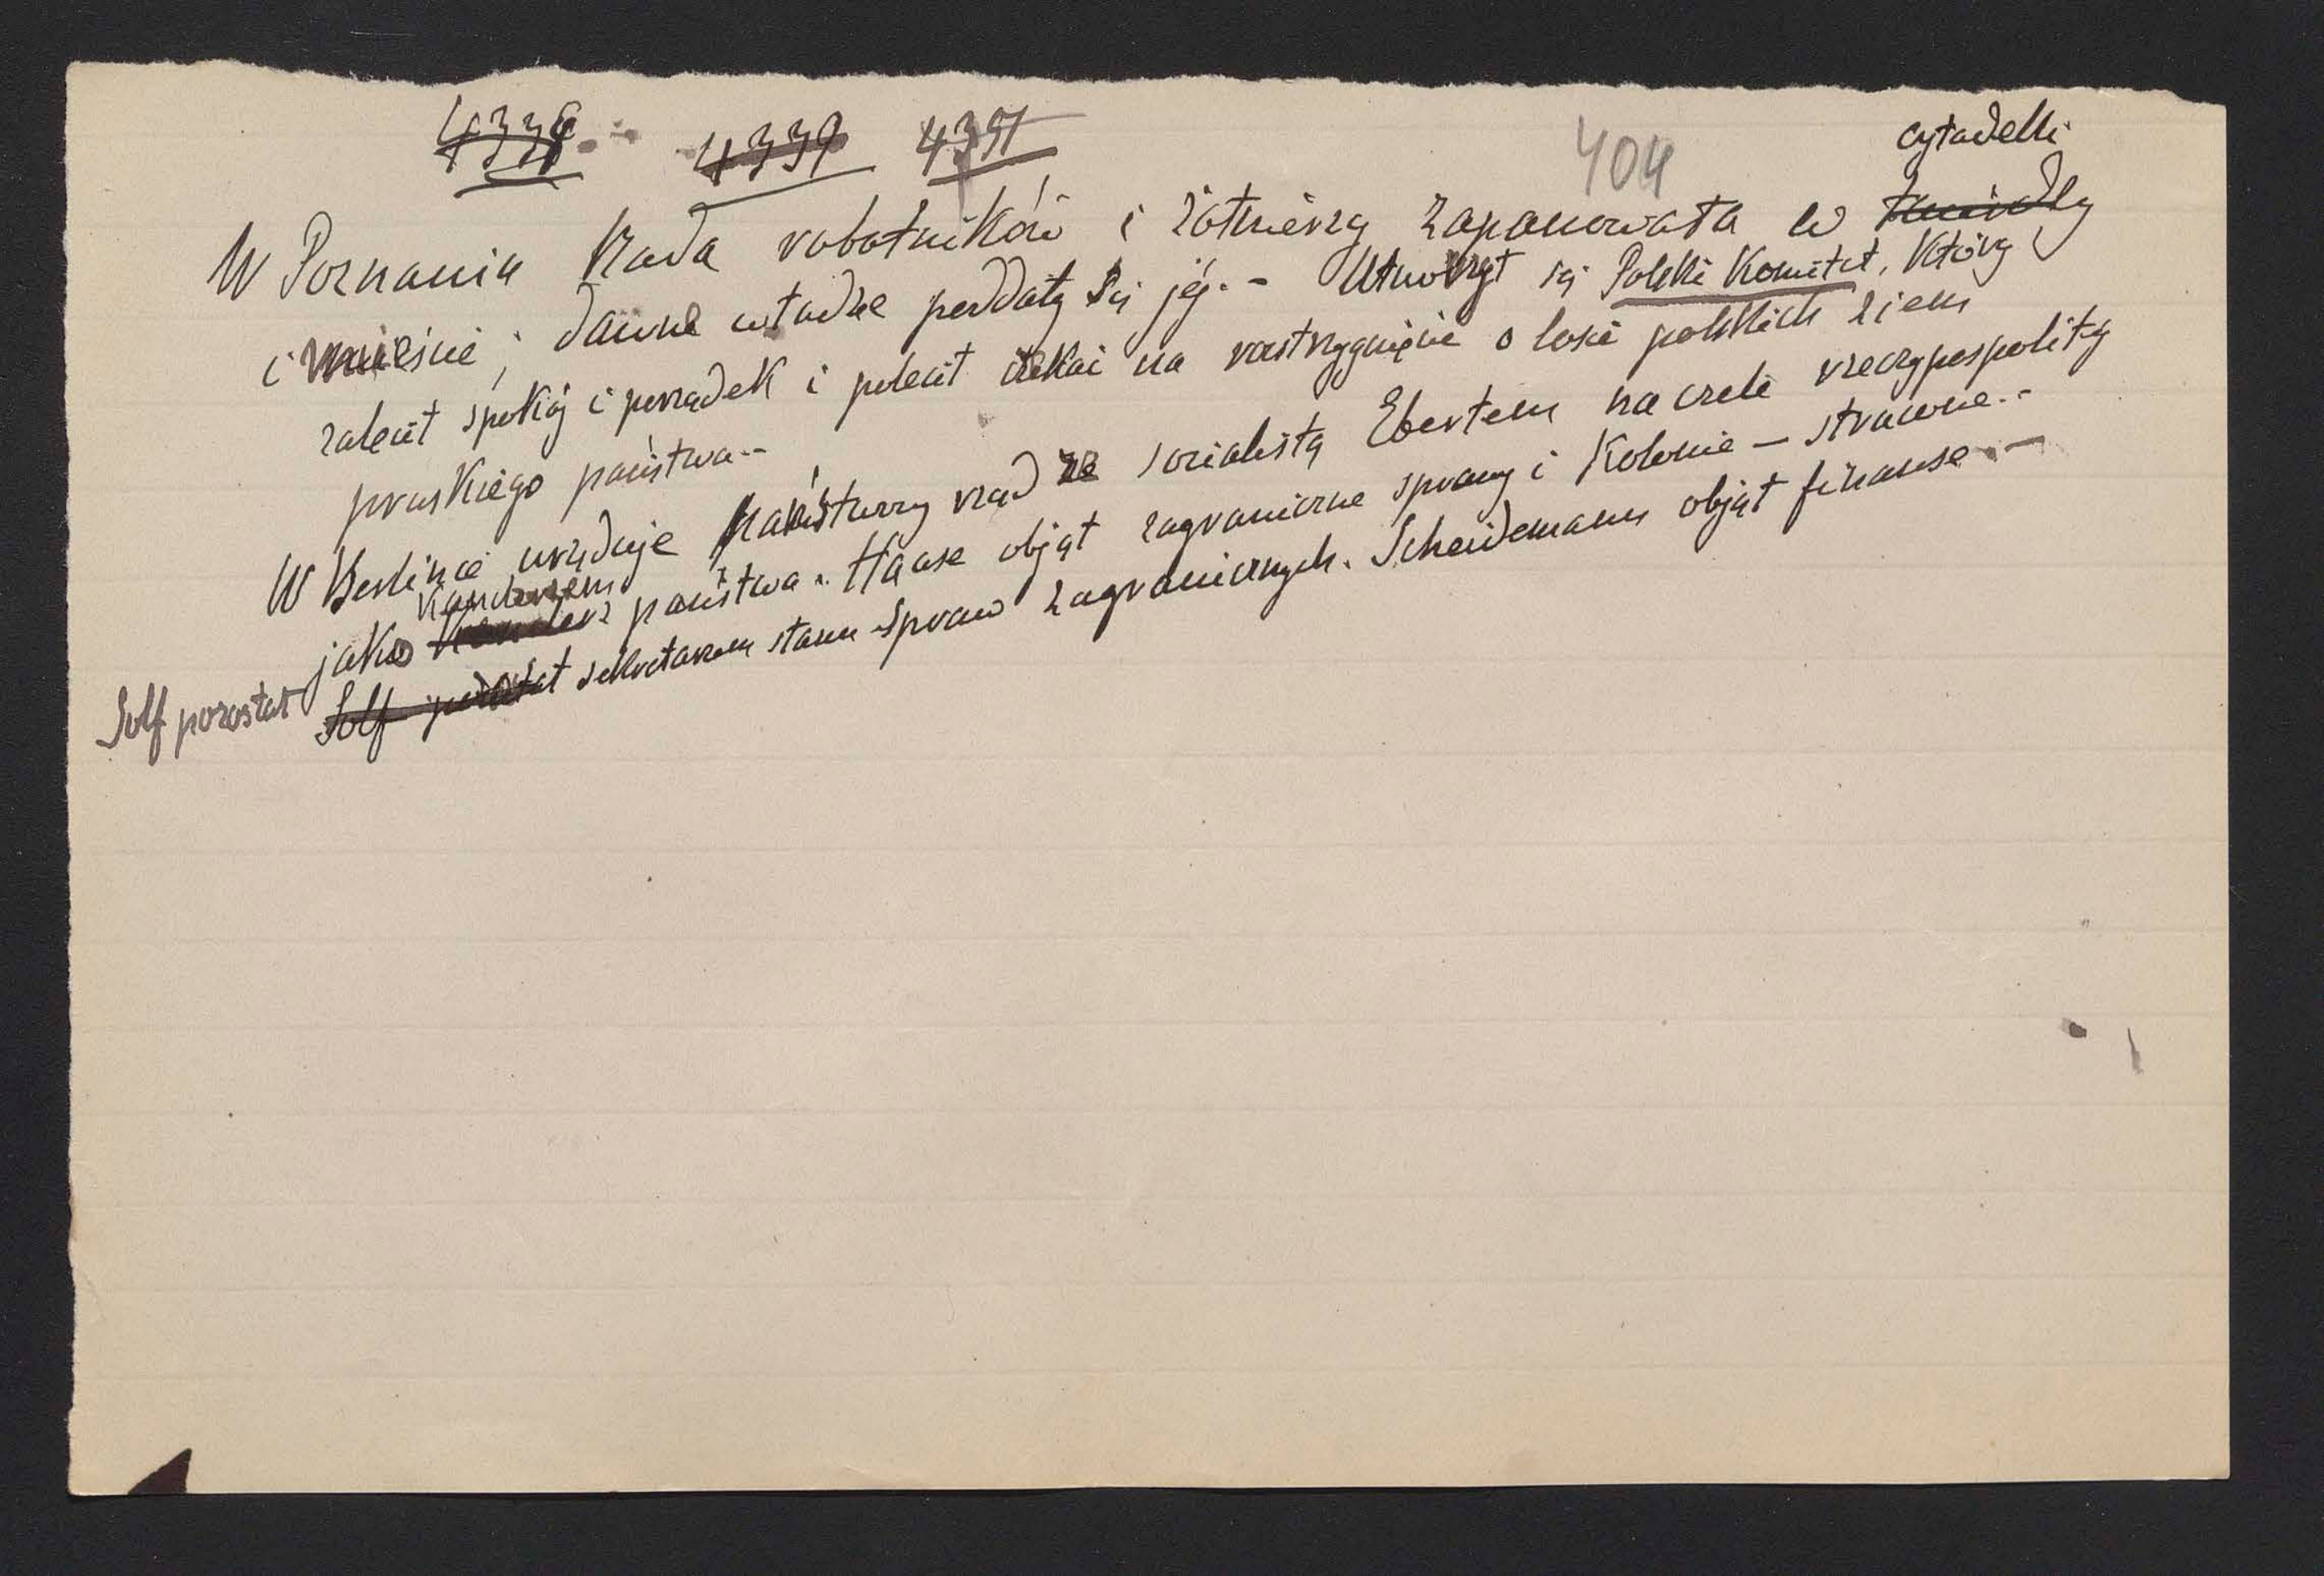 4338 4339 4351 404
cytadelli
W Poznaniu Rada robotników i żołnierzy zapanowała w
i mieście; dawne władze poddały się jéj. - Utworzył się Polski Komitet, który
zalecił spokój i porządek i polecił czekać na rozstrzygnięcie o losie polskich ziem
pruskiego państwa..
W Berlinie urzęduje rząd ze socialistą Ebertem na czele rzeczypospolitą
kanclerzem
jako kanclerz państwa. Haase objął zagraniczne sprawy i Kolonie —
Solf pozostał Solf pozostał sekretarzem stanu spraw zagranicznych. Scheidemann objął finanse. —